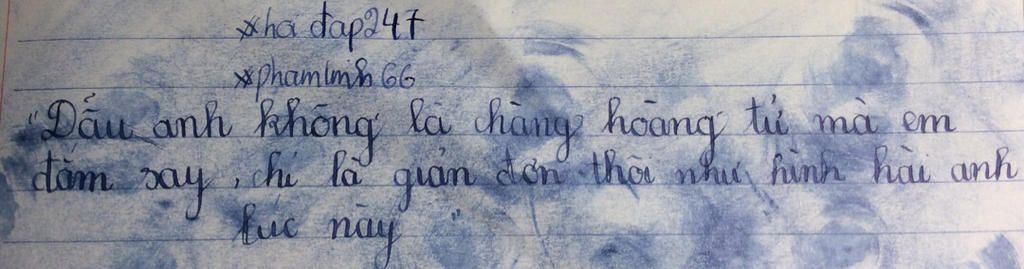 *hoi đap247
*phamlinh66
"Dẫu anh không là chàng hoàng tử mà em
đắm say, chỉ là giản đơn thôi như hình hài anh
lúc này"